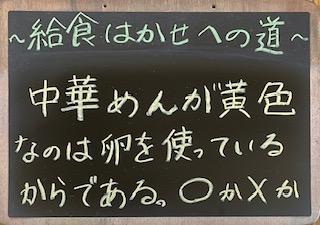 ～給食はかせへの道～
中華めんが黄色
なのは卵を使っている
からである。○か×か